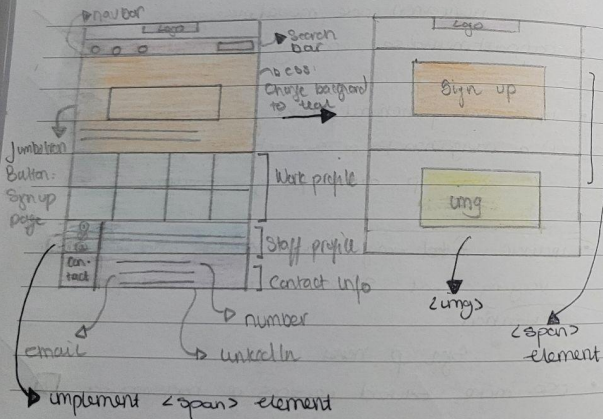 navbar
Logo
Search
bar
css:
Change background
to teal
Jumbotron
Button:
Sign up
page
Work profile
Staff profile
Con-
tact
Contact info
number
email
LinkedIn
implement <span> element
Logo
Sign up
img
<img>
<span>
element